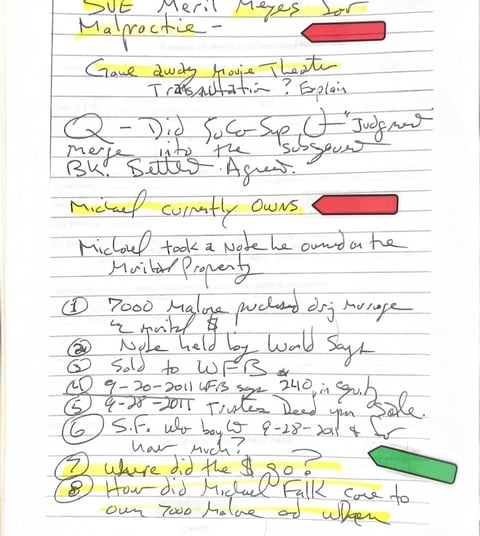 SUE Meril Meyes for
Malproctie -
Gave away Movie Theater
? Explain
Q - Did SoCo Sup Ct "Judgment
merge into the subsequent
BK. Settle Agree.
Michael currently owns
Michael took a Note he owned on the
Marital Property
① 7000 Malone purchased drg marrage
w marital $
② Note held by World Savgs
③ Sold to WFB
④ 9-20-2011 WFB says 240, in equity
⑤ 9-28-2011 Trustee Deed upon Sale.
⑥ S.F. who bought 9-28-2011 & for
how much?
⑦ Where did the $ go?
⑧ How did Michael Falk come to
own 7000 Malone and When